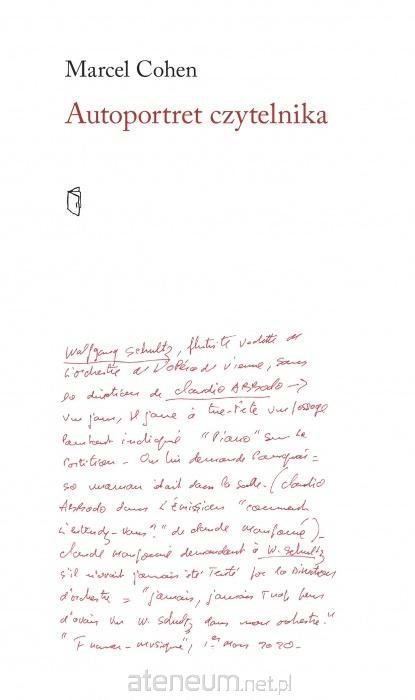 Marcel Cohen
Autoportret czytelnika
Wolfgang Schultz, flûtiste vedette de
l'orchestre de l'Opéra de Vienne, sous
la direction de Claudio Abbado →
un jour, il joue à tue-tête un passage
pourtant indiqué "Piano" sur la
partition – On lui demande pourquoi =
sa maman était dans la salle – (Claudio
Abbado dans l'émission "Comment
l'entendez-vous ?" de Claude Maupomé) –
Claude Maupomé demandant à W. Schultz
s'il n'avait jamais été tenté par la direction
d'orchestre = "jamais, jamais
d'avoir un W. Schultz dans mon orchestre."
"France-Musique", 1er mars 2020 –
ateneum.net.pl